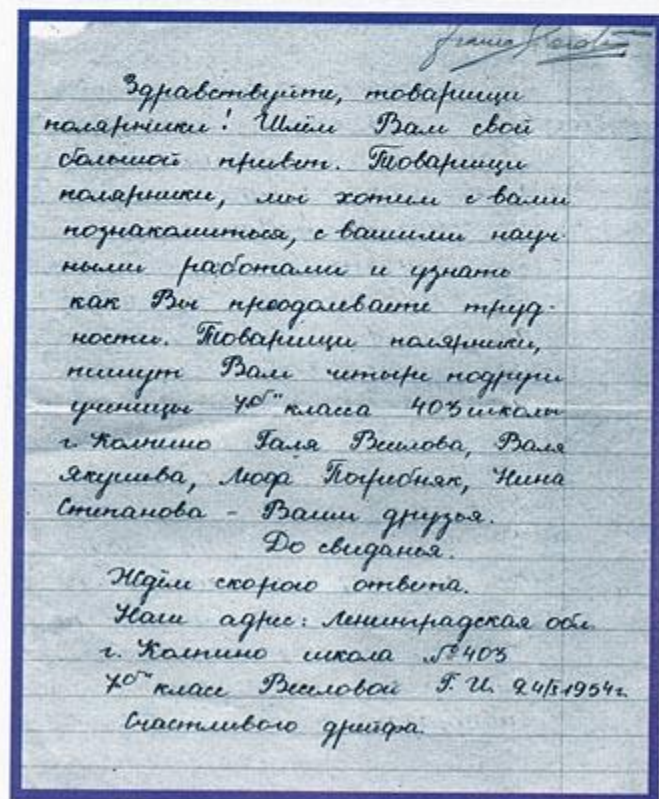 Здравствуйте, товарищи
полярники! Шлём Вам свой
большой привет. Товарищи
полярники, мы хотим с вами
познакомиться, с вашими науч-
ными работами и узнать
как Вы преодолеваете труд-
ности. Товарищи полярники,
пишут Вам четыре подруги
ученицы 7"б" класса 403 школы
г. Колпино Галя Веилова, Валя
Якушева, Люда Погребняк, Нина
Степанова - Ваши друзья.
До свиданья.
Ждём скорого ответа.
Наш адрес: Ленинградская обл.
г. Колпино школа №403
7"б" класс Веиловой Г. И. 24/X 1954г.
Счастливого дрейфа.